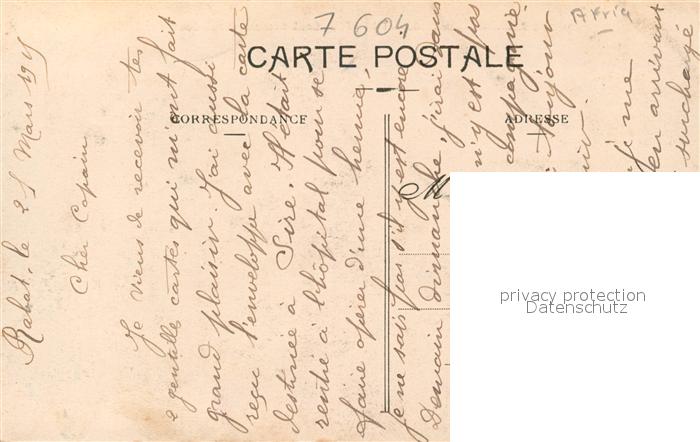 7 604
Afrig
CARTE POSTALE
CORRESPONDANCE
ADRESSE
M
Rabat, le 21 Mars 1915
Cher Copain
Je viens de recevoir tes
2 gentilles cartes qui m'ont fait
grand plaisir. J'ai aussi
reçu l'enveloppe avec la carte
destinée à Sire. Il était
rentré à l'hôpital pour se
faire opérer d'une hernie,
je ne sais pas s'il y est encore
Demain dimanche j'irai
n'y est pas
compagnie.
toujours
je me
en arrivant
privacy protection
Datenschutz